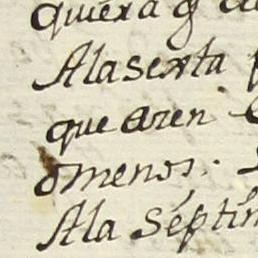 quiera q
A la sexta
que aren
o menos.
A la séptim